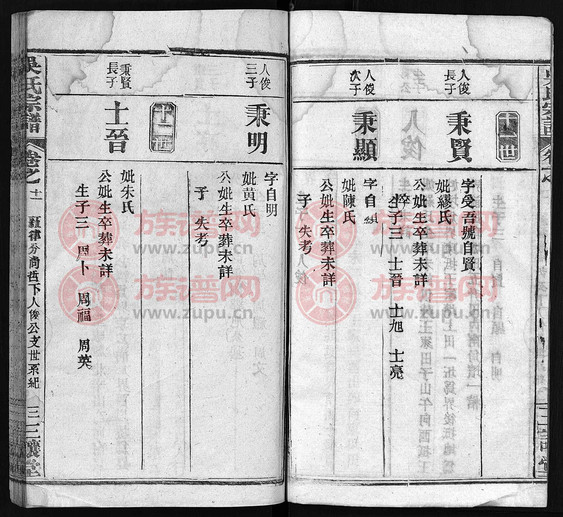 人俊長子
秉賢
字受吾號自賢
妣繆氏
公妣生卒葬未詳
生子三 士晉 士旭 士亮
十一世
人俊次子
秉顯
字自
妣陳氏
公妣生卒葬未詳
子 失考
人俊三子
秉明
字自明
妣黄氏
公妣生卒葬未詳
子 失考
十二世
秉賢長子
士晉
妣朱氏
公妣生卒葬未詳
生子三 周卜 周福 周英
吳氏宗譜
卷之十一
下人俊公支世系紀
三讓堂
族谱网
www.zupu.cn
族谱网
www.zupu.cn
族谱网
www.zupu.cn
族谱网
www.zupu.cn